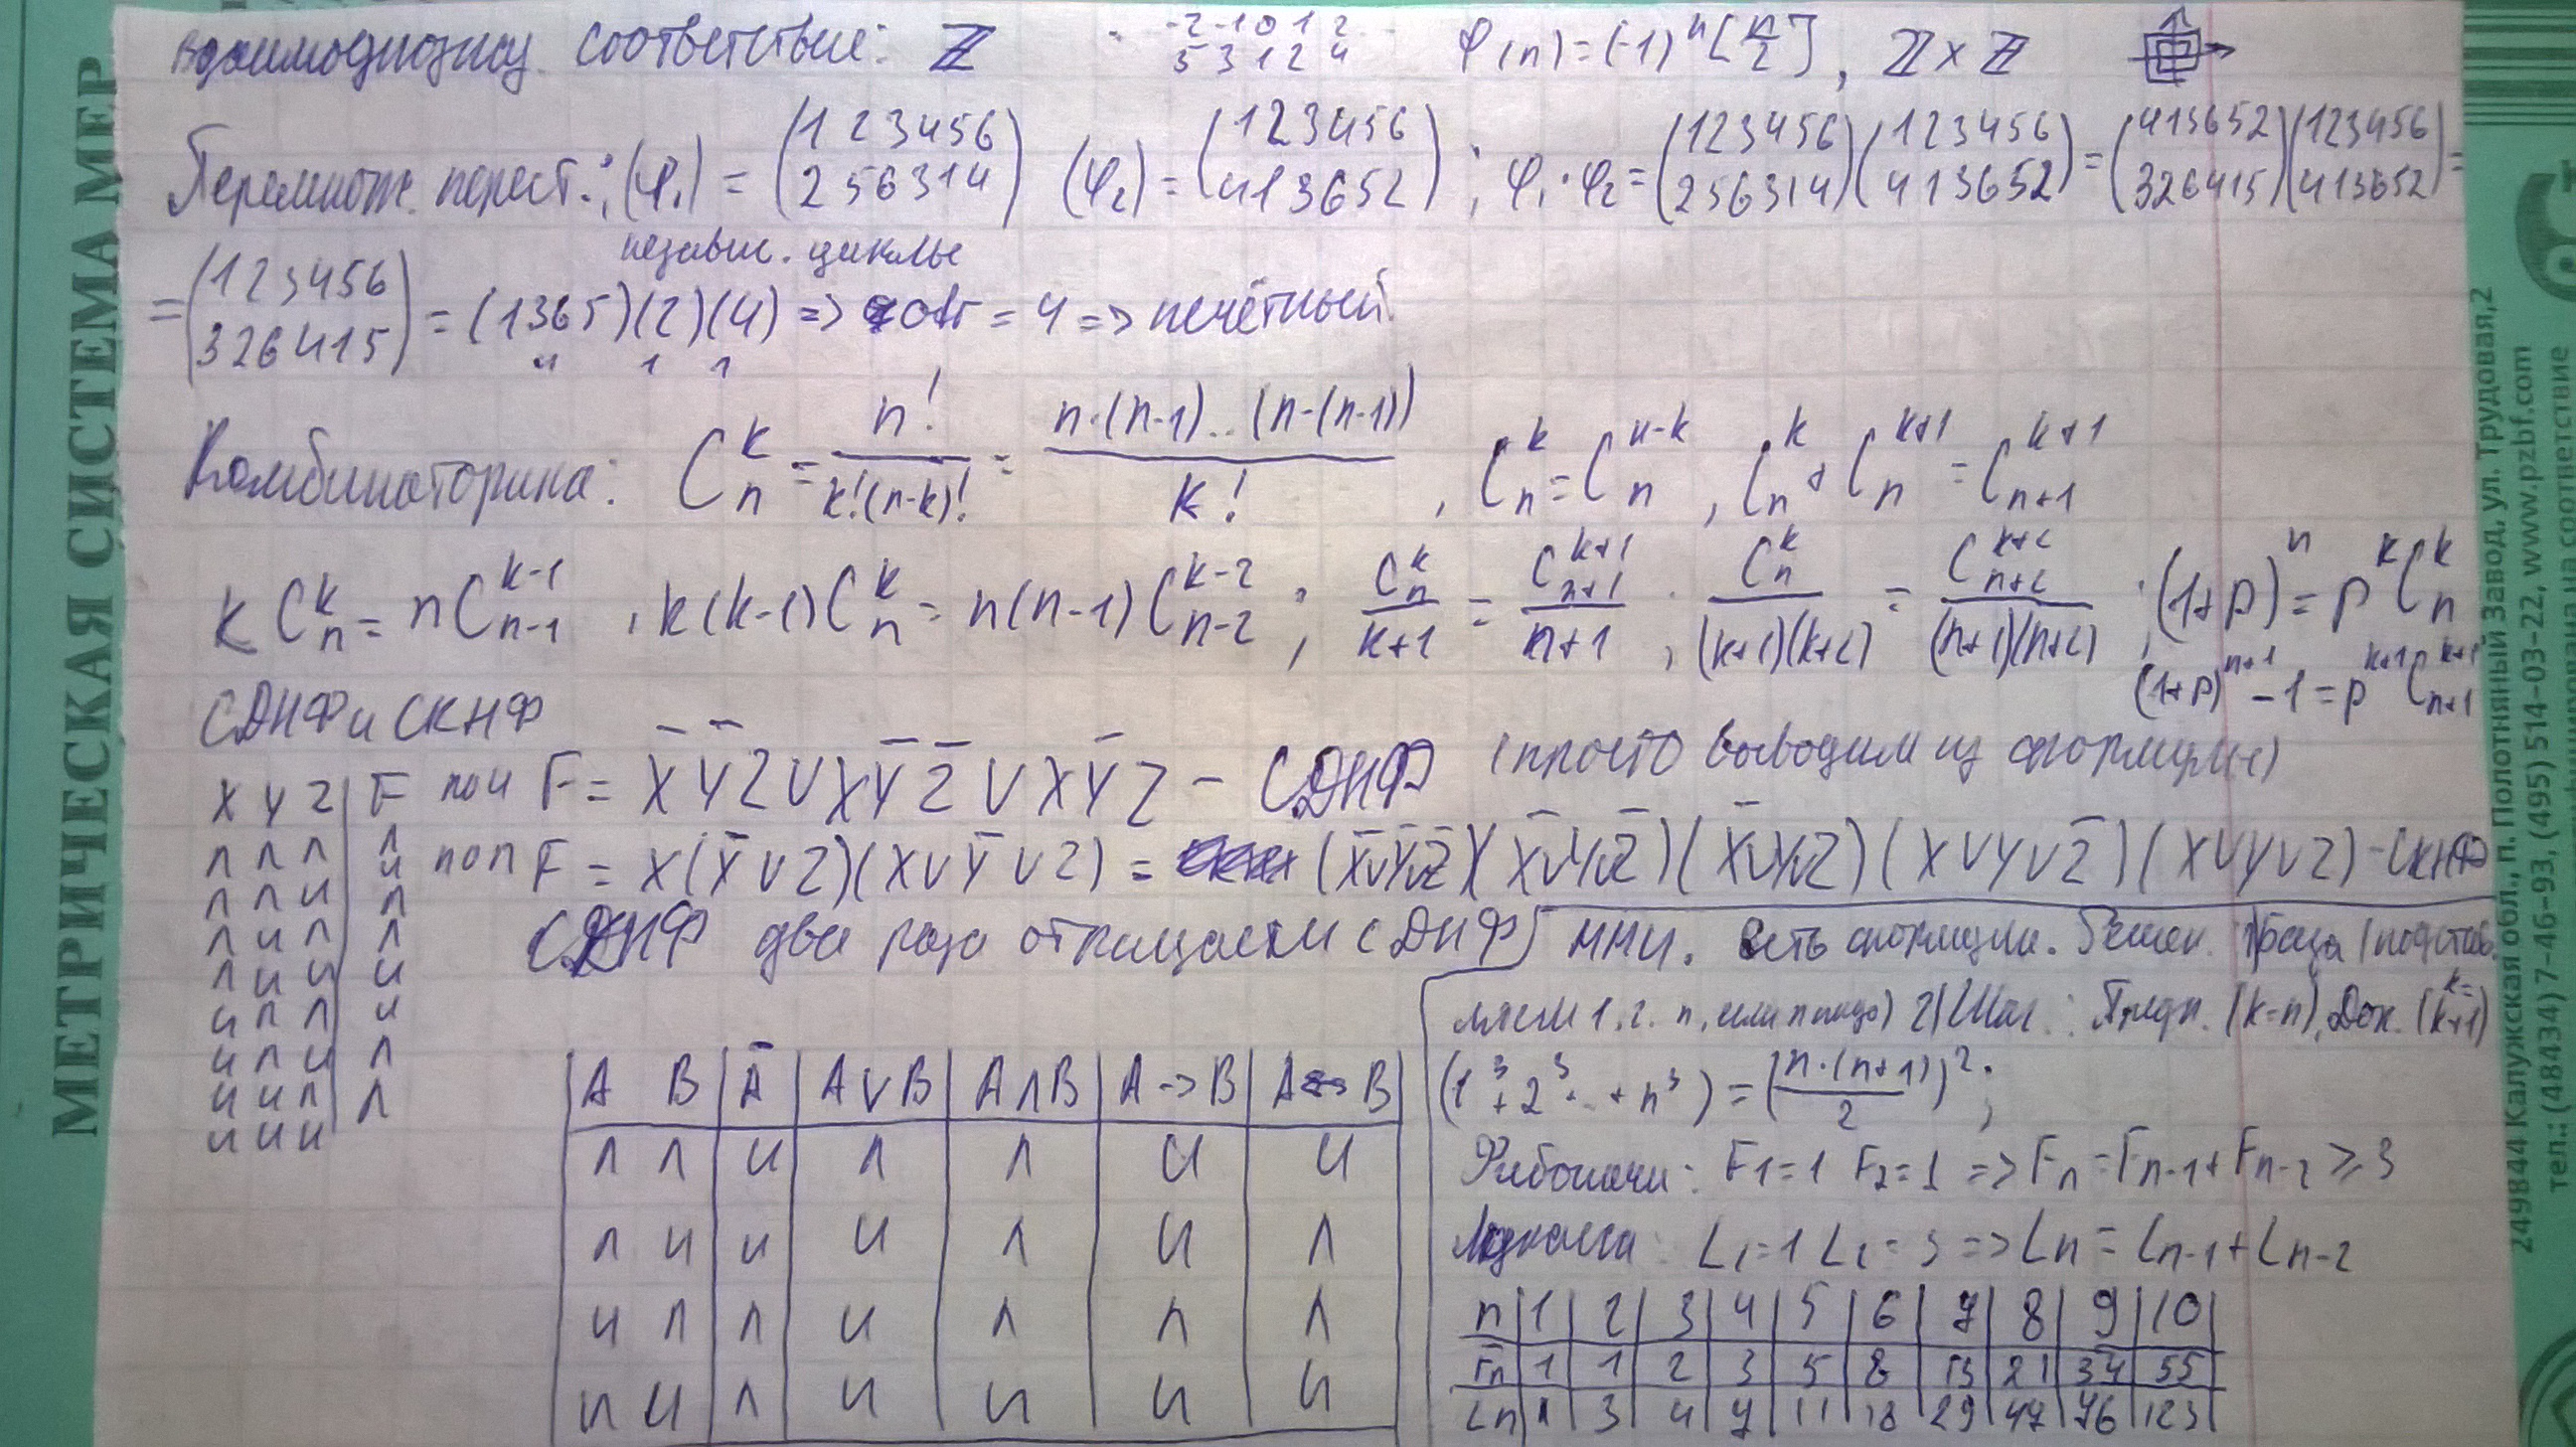 Взаимооднозну. соответствие: ℤ -2 -1 0 1 2 φ(n)=(-1)ⁿ[n/2], ℤ×ℤ
5 3 1 2 4
Перемнож. перест.: (φ₁) = (1 2 3 4 5 6 / 2 5 6 3 1 4) (φ₂) = (1 2 3 4 5 6 / 4 1 3 6 5 2); φ₁·φ₂ = (1 2 3 4 5 6 / 2 5 6 3 1 4)(1 2 3 4 5 6 / 4 1 3 6 5 2) = (4 1 3 6 5 2 / 3 2 6 4 1 5)(1 2 3 4 5 6 / 4 1 3 6 5 2) =
независ. циклы
= (1 2 3 4 5 6 / 3 2 6 4 1 5) = (1365)(2)(4) => = 4 => нечётный
4 1 1
Комбинаторика: C_n^k = n!/(k!(n-k)!) = n·(n-1)..(n-(n-1))/k! , C_n^k = C_n^{n-k} , C_n^k + C_n^{k+1} = C_{n+1}^{k+1}
k C_n^k = n C_{n-1}^{k-1} , k(k-1) C_n^k = n(n-1) C_{n-2}^{k-2} ; C_n^k/(k+1) = C_{n+1}^{k+1}/(n+1) , C_n^k/((k+1)(k+2)) = C_{n+2}^{k+2}/((n+1)(n+2)) ; (1+p)^n = p^k C_n^k
(1+p)^{n+1} - 1 = p^{k+1} C_{n+1}^{k+1}
СДНФ и СКНФ
X Y Z | F по и F = X̄ Ȳ Z ∨ X Ȳ Z̄ ∨ X Ȳ Z - СДНФ (просто выводим из формулы)
Л Л Л | Л по л F = X(Ȳ ∨ Z)(X ∨ Ȳ ∨ Z) = (X̄∨Ȳ∨Z̄)(X̄∨Y∨Z̄)(X̄∨Y∨Z)(X∨Y∨Z̄)(X∨Y∨Z) - СКНФ
Л Л И | И
Л И Л | Л
Л И И | Л
И Л Л | И
И Л И | И
И И Л | Л
И И И | Л
СДНФ два раза отрицаем СДНФ
ММИ. Есть формула. Решен. (подстав.
ляем 1, 2. n, если надо) 2) Шаг: Предп. (k=n), Док. (k=k+1)
(1³+2³..+n³) = (n·(n+1)/2)²;
Фибоначи: F₁=1 F₂=1 => Fₙ=Fₙ₋₁+Fₙ₋₂ ≥ 3
L₁=1 L₂=3 => Lₙ=Lₙ₋₁+Lₙ₋₂
n | 1 | 2 | 3 | 4 | 5 | 6 | 7 | 8 | 9 | 10
Fn | 1 | 1 | 2 | 3 | 5 | 8 | 13 | 21 | 34 | 55
Ln | 1 | 3 | 4 | 7 | 11 | 18 | 29 | 47 | 76 | 123
A B | Ā | A∨B | A∧B | A->B | A<->B
Л Л | И | Л | Л | И | И
Л И | И | И | Л | И | Л
И Л | Л | И | Л | Л | Л
И И | Л | И | И | И | И
МЕТРИЧЕСКАЯ СИСТЕМА МЕР
249844 Калужская обл., п. Полотняный Завод, ул. Трудовая,2
тел.: (48434) 7-46-93, (495) 514-03-22, www.pzbf.com